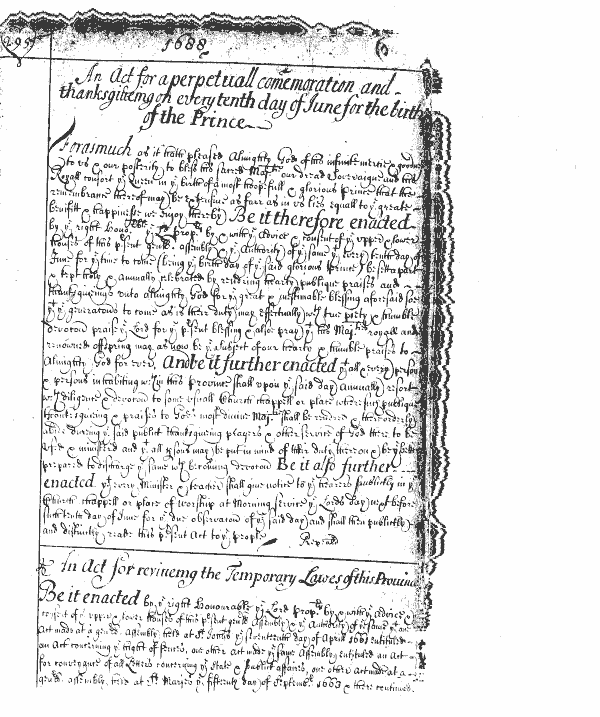 295
1688
An Act for a perpetuall comemoration and
thanksgiveing on every tenth day of June for the birth
of the Prince
Forasmuch as it hath pleased Almighty God of his infinite mercie & goodnes
to us & our posterity to bless his sacred Majtie our dread Soveraigne and his
Royall consort ye Queen in ye birth of a most hopefull & glorious Prince that the
remembrance thereof may be extensive as farr as in us lies equall to ye greate
benifitt & happiness we enjoy thereby Be it therefore enacted
by ye right Honoble ye Lord Propry by & with ye Advice & consent of ye upper & lower
houses of this psent genll assembly & ye Authority of ye same yt every tenth day of
June for ye time to come (being ye birth day of ye said glorious Prince) be sett apart
& kept holy & annually celebrated by rendering hearty publique praises and
thanksgiveings unto Almighty God for ye great & inestimable blessing aforesaid soe
yt ye generations to come as is there duty may effectually wth true piety & humble
devotion praise ye Lord for ye psent blessing & alsoe pray yt his Majtis royall and
renowned offspring may as now be ye subject of our hearty & humble praises to
Almighty God for ever. And be it further enacted yt all & every person
& persons inhabiting wthin this Province shall upon ye said day annually resort
wth diligence & devotion to some usuall Church chappell or place where such publique
thanksgiveing & praises to Gods most divine Majtie shall be rendered & there orderly
abide during ye said publick thanksgiving prayers & other service of God there to be
used & ministred and yt all psons may be put in mind of their duty thereon & be ye better
prepared to discharge ye same wth becoming devotion Be it also further
enacted yt every Minister & teacher shall give notice to ye hearers publickly in ye
Church chappell or place of worship at Morning service ye Lords day next before
such tenth day of June for ye due observation of ye said day and shall then publickly
and distinctly reade this psent Act to ye people
An Act for reviveing the Temporary Lawes of this Province
Be it enacted by ye right Honourable ye Lord Propry by & with ye Advice
consent of ye upper & lower houses of this psent genll Assembly & ye Authority of ye same yt an
Act made at a genll Assembly held at St. day of April entituled
an Act concerning ye one other Act made ye same Assembly entituled an Act
for conveyance of all Letters concerning ye state & publick affaires, one other Act made at a
genll assembly held at St. Maryes ye fifteenth day of Septembr 1663 & there continued